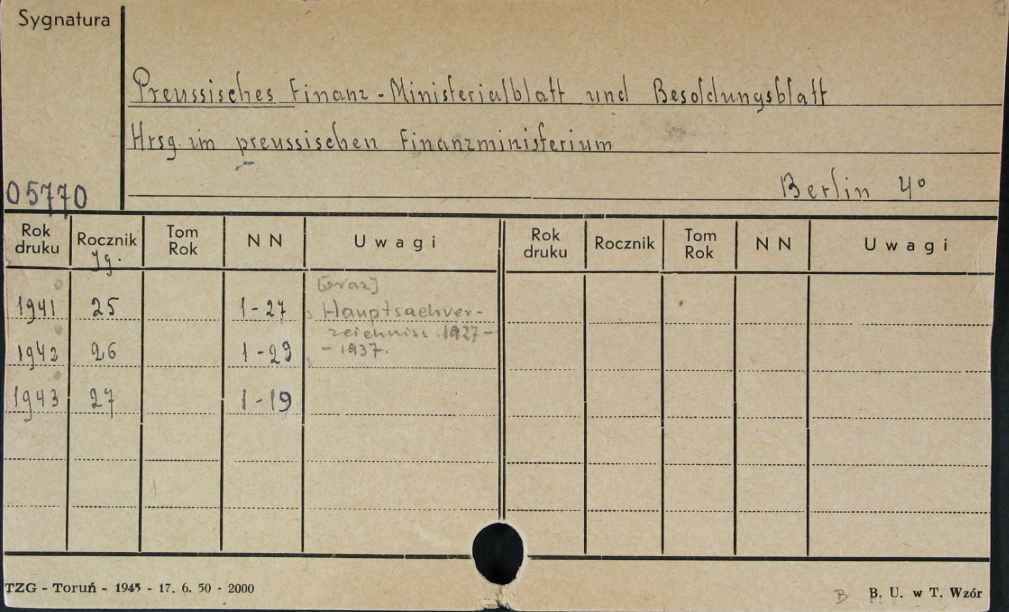 Sygnatura
Preussisches Finanz-Ministerialblatt und Besoldungsblatt
Hrsg. im preussischen Finanzministerium
Berlin 4°
05770
Rok druku Rocznik Tom Rok NN Uwagi Rok druku Rocznik Tom Rok NN Uwagi
Jg.
[oraz]
1941 25 1-27 Hauptsachver-
zeichniss 1927-
1942 26 1-23 -1937.
1943 27 1-19
TZG - Toruń - 1945 - 17. 6. 50 - 2000
B B. U. w T. Wzór